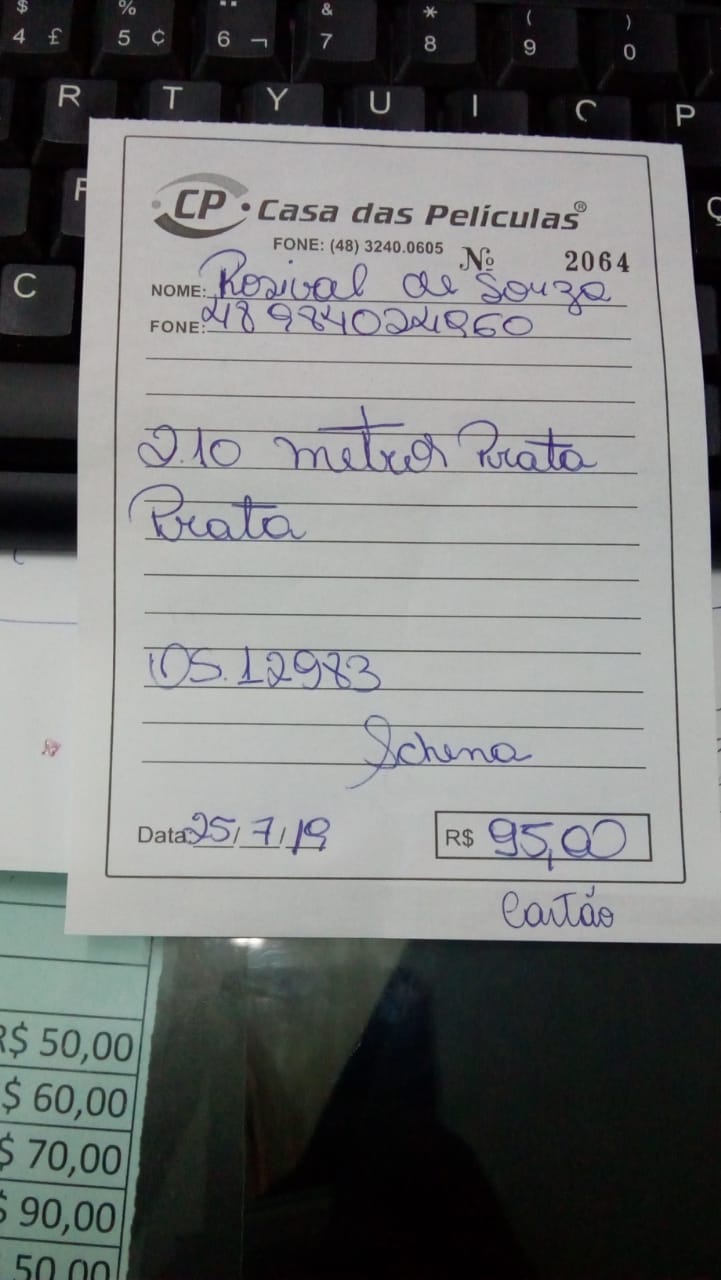 $ % & * ( )
4 £ 5 ¢ 6 ¬ 7 8 9 0
R T Y U I P
C Ç
CP Casa das Películas®
FONE: (48) 3240.0605 Nº 2064
NOME: Rosival de Souza
FONE: 48 984024960
2.10 metros Prata
Prata
OS.12983
Schena
Data 25/7/19 R$ 95,00
Cartão
R$ 50,00
$ 60,00
$ 70,00
$ 90,00
50,00